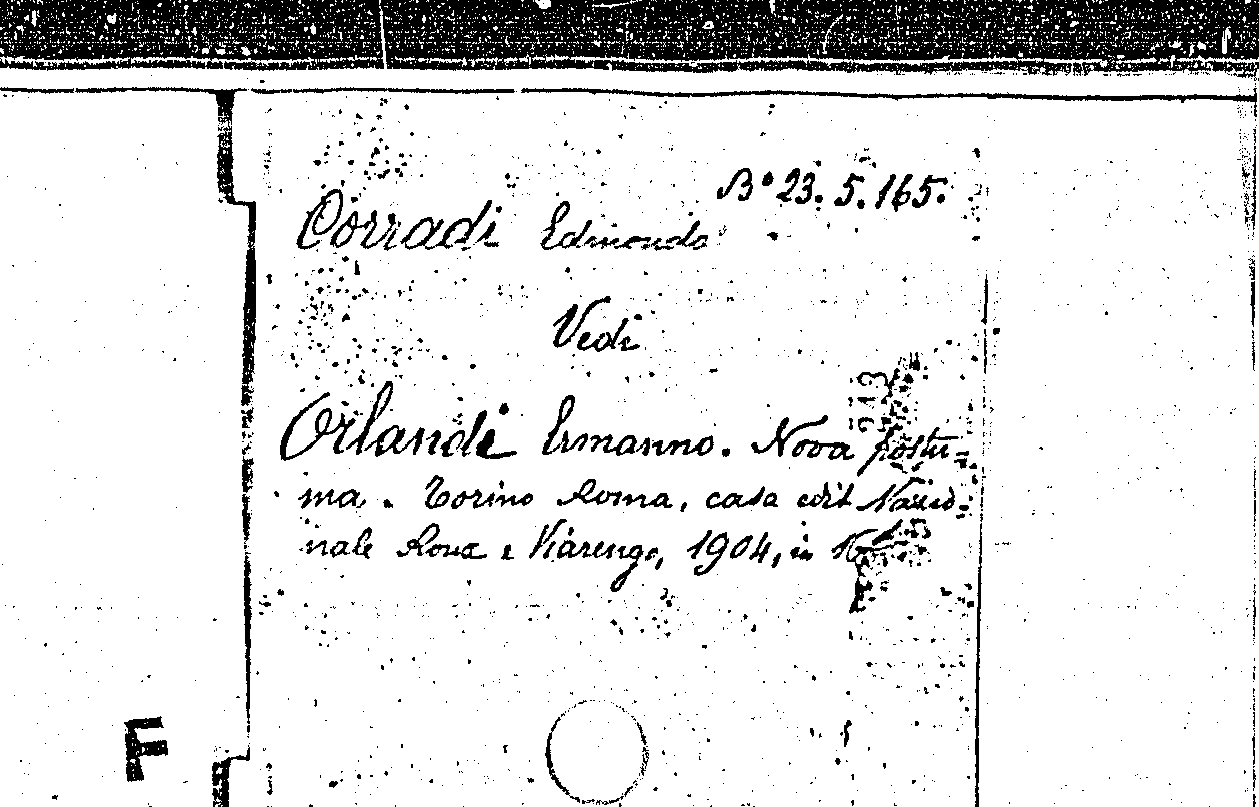 B° 23. 5. 165.
Corradi Edmondo
Vedi
243
Orlandi Ermanno. Nova postu=
ma. Torino Roma, casa edit Nazio=
nale Roux e Viarengo, 1904, in 16
F